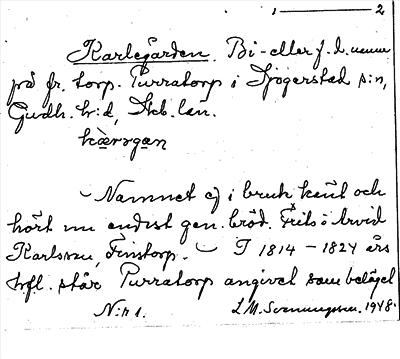 1 — 2
Karlegården. Bi- eller f.d. namn
på fr. torp. Purratorp i Sjögerstad s:n,
Gudh. h:d, Skb. län.
kærsgan
Namnet ej i bruk känt och
hört nu endast gen. bröd. Frits o Arvid
Karlsson, Finstorp. — I 1814 – 1824 års
hfl. står Purratorp angivet som beläget
N:r 1. L.M. Svenungsson. 1948.